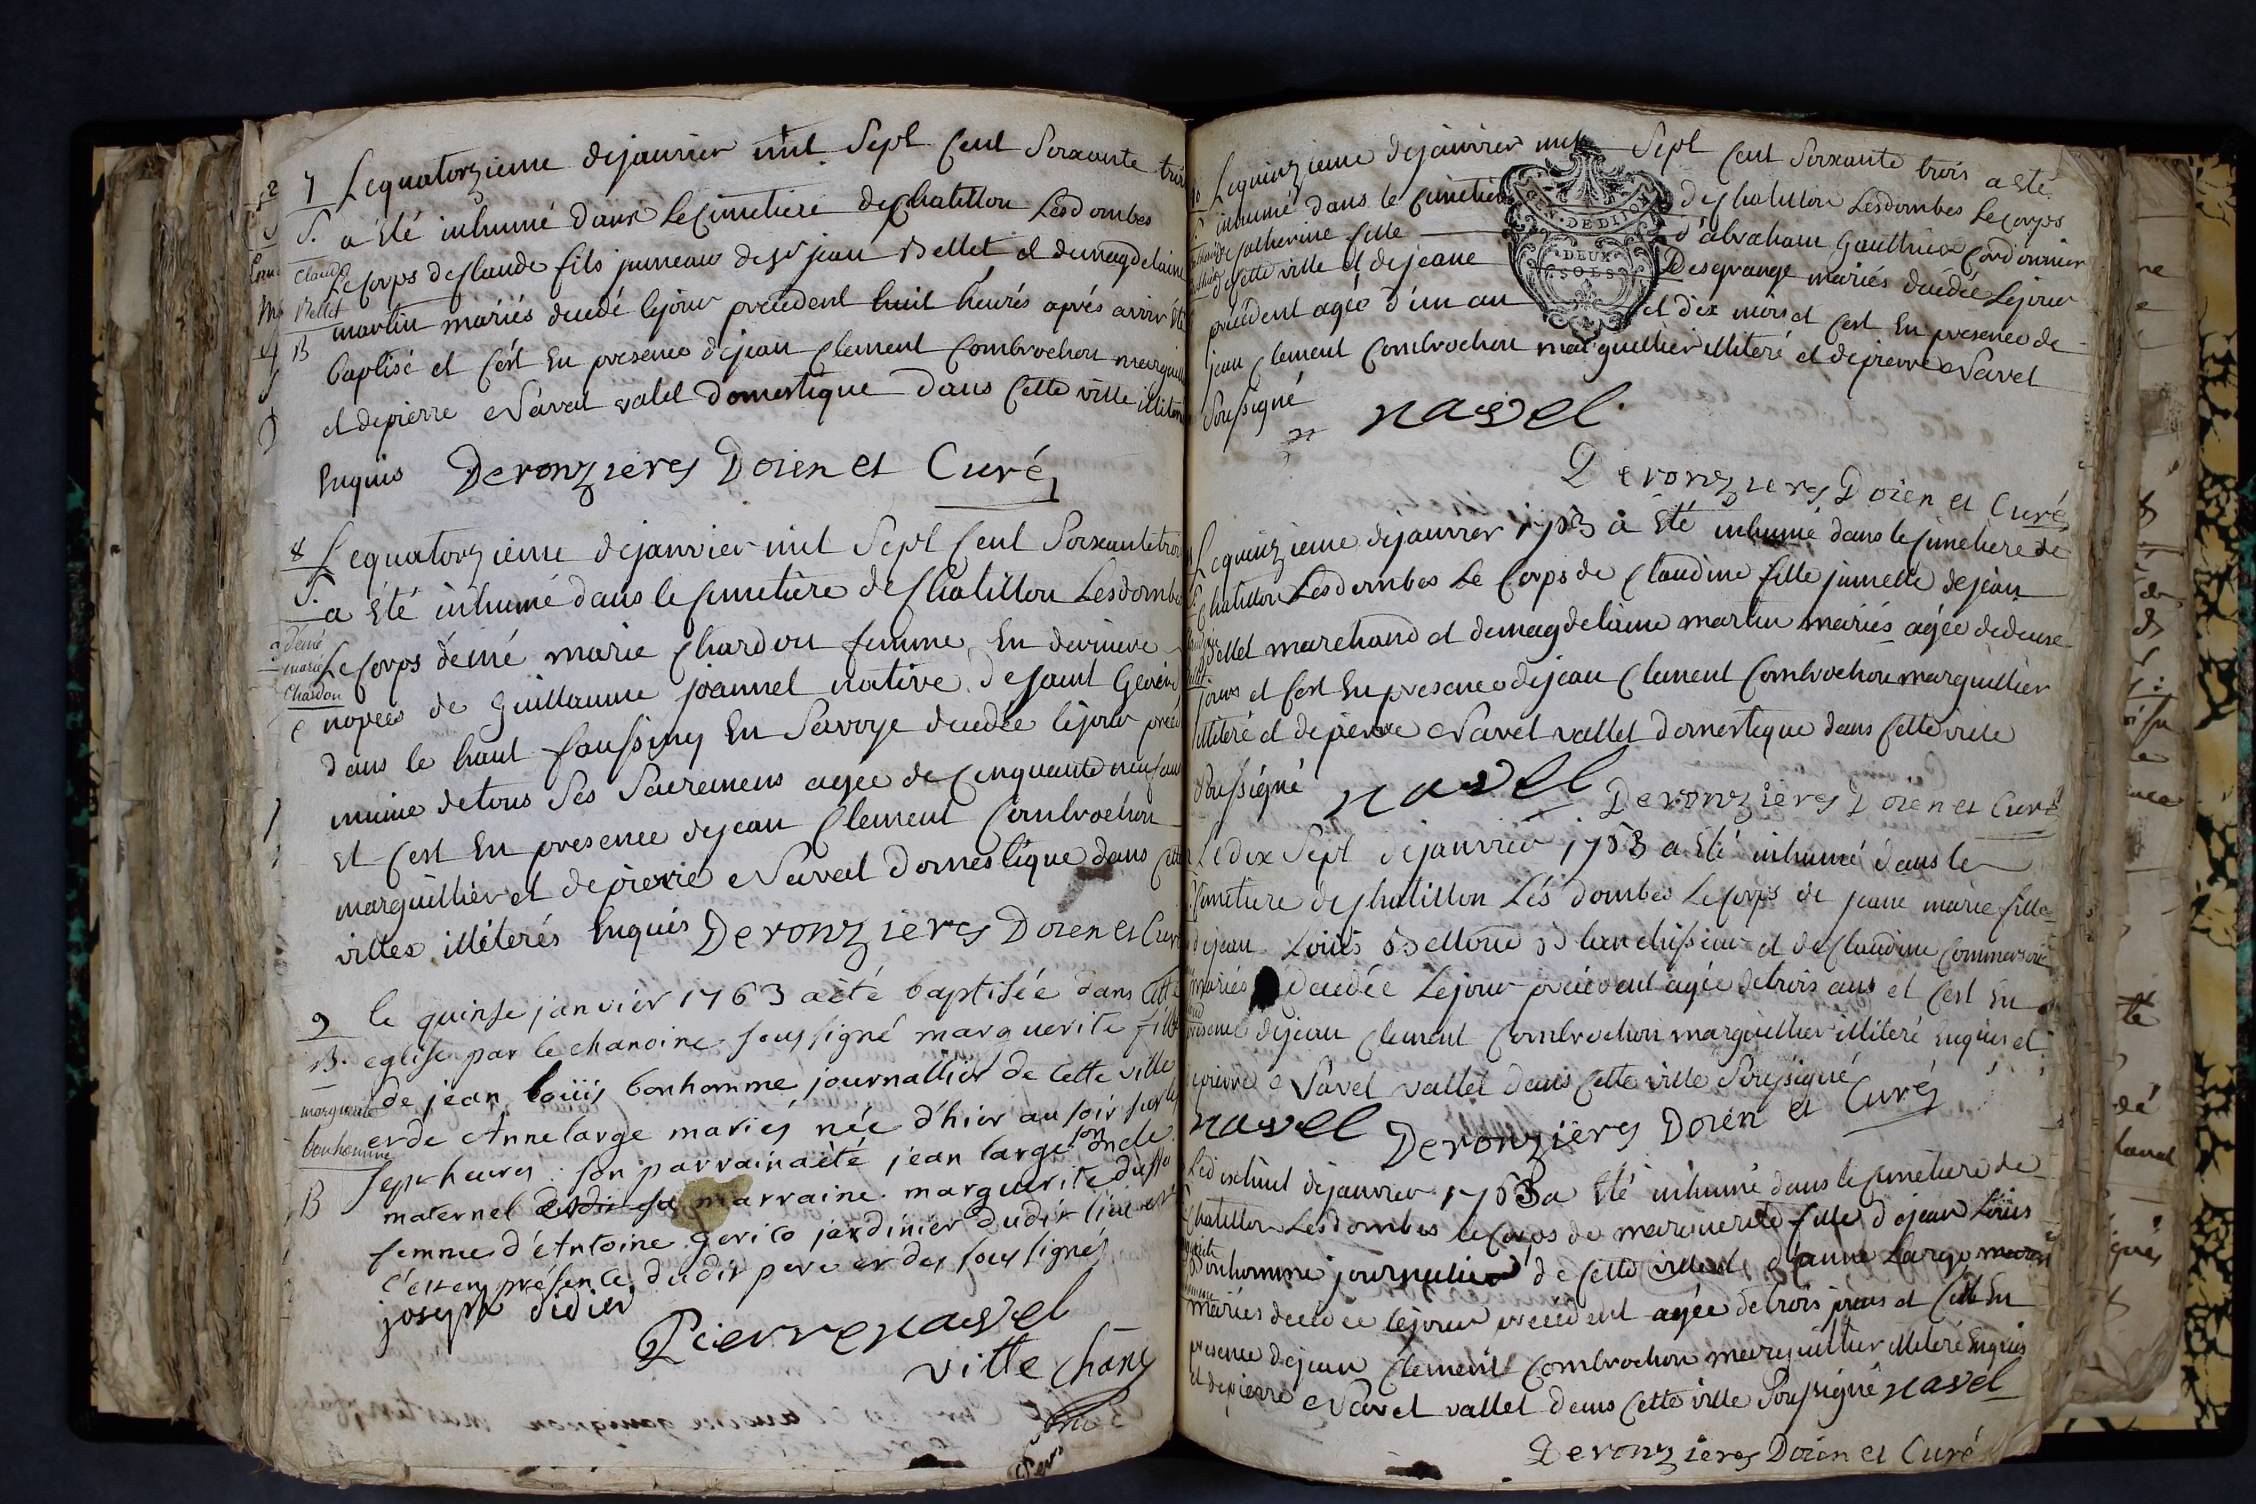 7 Le quatorzieme de janvier mil Sept Cent Soixante trois
S. a été inhumé dans le Cimetiere de Chatillon Lesdombes
Claude Le Corps de Claude fils jumeau de Sr jean Bellet et de magdelaine
Bellet martin mariés decedé le jour precedent huit heures aprés avoir été
B baptisé et C'est En presence de jean Clement Combrochon marguillier
et de pierre Navel valet domestique dans Cette ville illiterés
Enquis Deronzieres Doien et Curé
8 Le quatorzieme de janvier mil Sept Cent Soixante trois
S. a été inhumé dans le Cimetiere de Chatillon Lesdombes
d'émé marie Le Corps d'émé marie Chardon femme En derniere
Chardon nopces de Guillaume joannet native de Saint
dans le haut faussiny En Savoye decedée le jour
munie de tous Ses Sacremens agée de Cinquante neuf ans
et C'est En presence de jean Clement Combrochon
marguillier et de pierre Navel domestique dans Cette
ville illiterés Enquis Deronzieres Doien et Curé
9 le quinse janvier 1763 a été baptisée dans Cette
B. eglise par le chanoine soussigné marguerite fille
marguerite de jean loüis bonhomme journallier de Cette ville
bonhomme et de Anne large mariés née d'hier au soir sur les
B sept heures. son parrain a été jean large son oncle
maternel et sa marraine marguerite
femme d'Antoine jardinier dudit lieu et
c'est en présence dudit pere et des soussignés
joseph didier
Pierre navel
vitte chane
10 Le quinzieme de janvier mil Sept Cent Soixante trois a été
inhumé dans le Cimetiere de Chatillon Lesdombes Le Corps
de Catherine fille d'abraham Gauthier Cordonnier
de Cette ville et de jeane Desgrange mariés decedée le jour
precedent agée d'un an et dix mois et C'est En presence de
jean Clement Combrochon marguillier illiteré et de pierre Navel
Soussigné
GEN. DE DIJON
DEUX
SOLS
navel
Deronzieres Doien et Curé
Le quinzieme de janvier 1763 a été inhumé dans le Cimetiere de
Chatillon Lesdombes Le Corps de Claudine fille jumelle de jean
Bellet marchand et de magdelaine martin mariés agée de deux
jours et C'est En presence de jean Clement Combrochon marguillier
illiteré et de pierre Navel vallet domestique dans Cette ville
Soussigné navel Deronzieres Doien et Curé
Le dix Sept de janvier 1763 a été inhumé dans le
Cimetiere de Chatillon Lés dombes Le Corps de jeane marie fille
de jean Loüis et de Claudine
mariés decedée Le jour precedent agée de trois ans et C'est En
presence de jean Clement Combrochon marguillier illiteré Enquis et
de pierre Navel vallet dans Cette ville Soussigné
navel Deronzieres Doien et Curé
Le dix huit de janvier 1763 a été inhumé dans le Cimetiere de
Chatillon Lesdombes le Corps de marguerite fille de jean Loüis
Bonhomme journalier de Cette ville et d'anne Large
mariés decedée le jour precedent agée de trois jours et C'est En
presence de jean Clement Combrochon marguillier illiteré Enquis
et de pierre Navel vallet dans Cette ville Soussigné navel
Deronzieres Doien et Curé